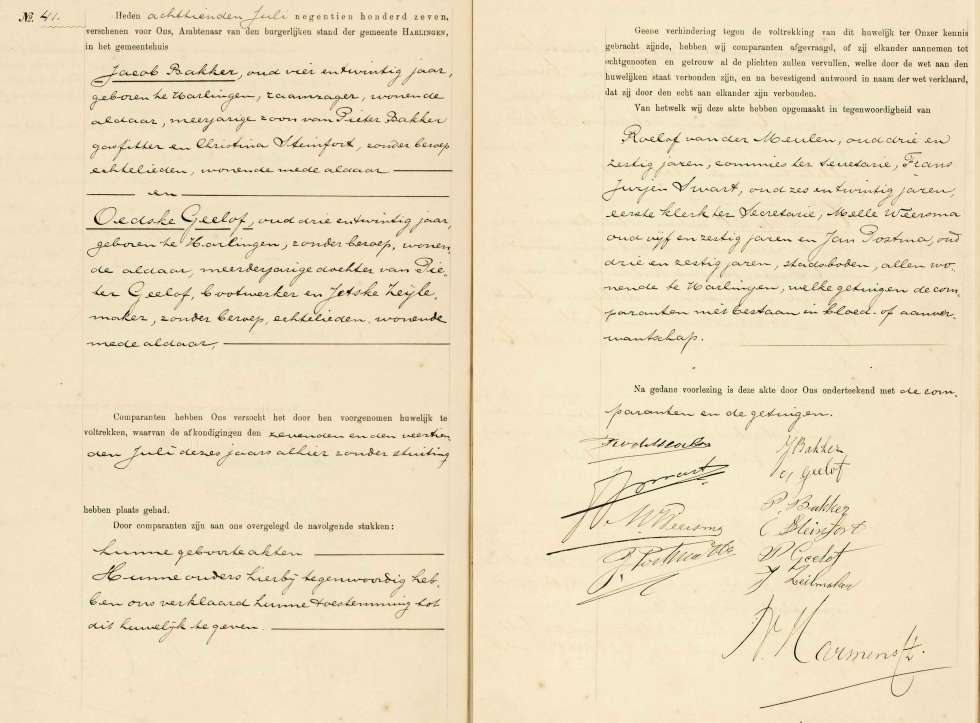 №. 41. Heden achttienden Juli negentien honderd zeven,
verschenen voor Ons, Ambtenaar van den burgerlijken stand der gemeente HARLINGEN,
in het gemeentehuis
Jacob Bakker, oud vier en twintig jaar,
geboren te Harlingen, raamzager, wonende
aldaar, meerjarige zoon van Pieter Bakker
gasfitter en Christina Steinfort, zonder beroep
echtelieden, wonende mede aldaar
en
Oedske Geelof, oud drie en twintig jaar,
geboren te Harlingen, zonder beroep, wonen
de aldaar, meerderjarige dochter van Pie-
ter Geelof, bootwerker en Jetske Zeijle-
maker, zonder beroep, echtelieden, wonende
mede aldaar,
Comparanten hebben Ons verzocht het door hen voorgenomen huwelijk te
voltrekken, waarvan de afkondigingen den zevenden en den veertien
den Juli dezes jaars alhier zonder stuiting
hebben plaats gehad.
Door comparanten zijn aan ons overgelegd de navolgende stukken:
hunne geboorteakten
Hunne ouders hierbij tegenwoordig heb-
ben ons verklaard hunne toestemming tot
dit huwelijk te geven.
Geene verhindering tegen de voltrekking van dit huwelijk ter Onzer kennis
gebracht zijnde, hebben wij comparanten afgevraagd, of zij elkander aannemen tot
echtgenooten en getrouw al de plichten zullen vervullen, welke door de wet aan den
huwelijken staat verbonden zijn, en na bevestigend antwoord in naam der wet verklaard,
dat zij door den echt aan elkander zijn verbonden.
Van hetwelk wij deze akte hebben opgemaakt in tegenwoordigheid van
Roelof van der Meulen, oud drie en
zestig jaren, commies ter Secretarie, Frans
Jurjen Swart, oud zes en twintig jaren,
eerste klerk ter Secretarie, Melle Weersma
oud vijf en zestig jaren en Jan Postma, oud
drie en zestig jaren, stadsboden, allen wo-
nende te Harlingen, welke getuigen de com-
paranten niet bestaan in bloed- of aanver-
wantschap.
Na gedane voorlezing is deze akte door Ons onderteekend met de com-
paranten en de getuigen.
J Bakker
Swart
O Geelof
P. Bakker
M Weersma
C Steinfort
J. Postma
P Geelof
J Zeilmaker
Harmens